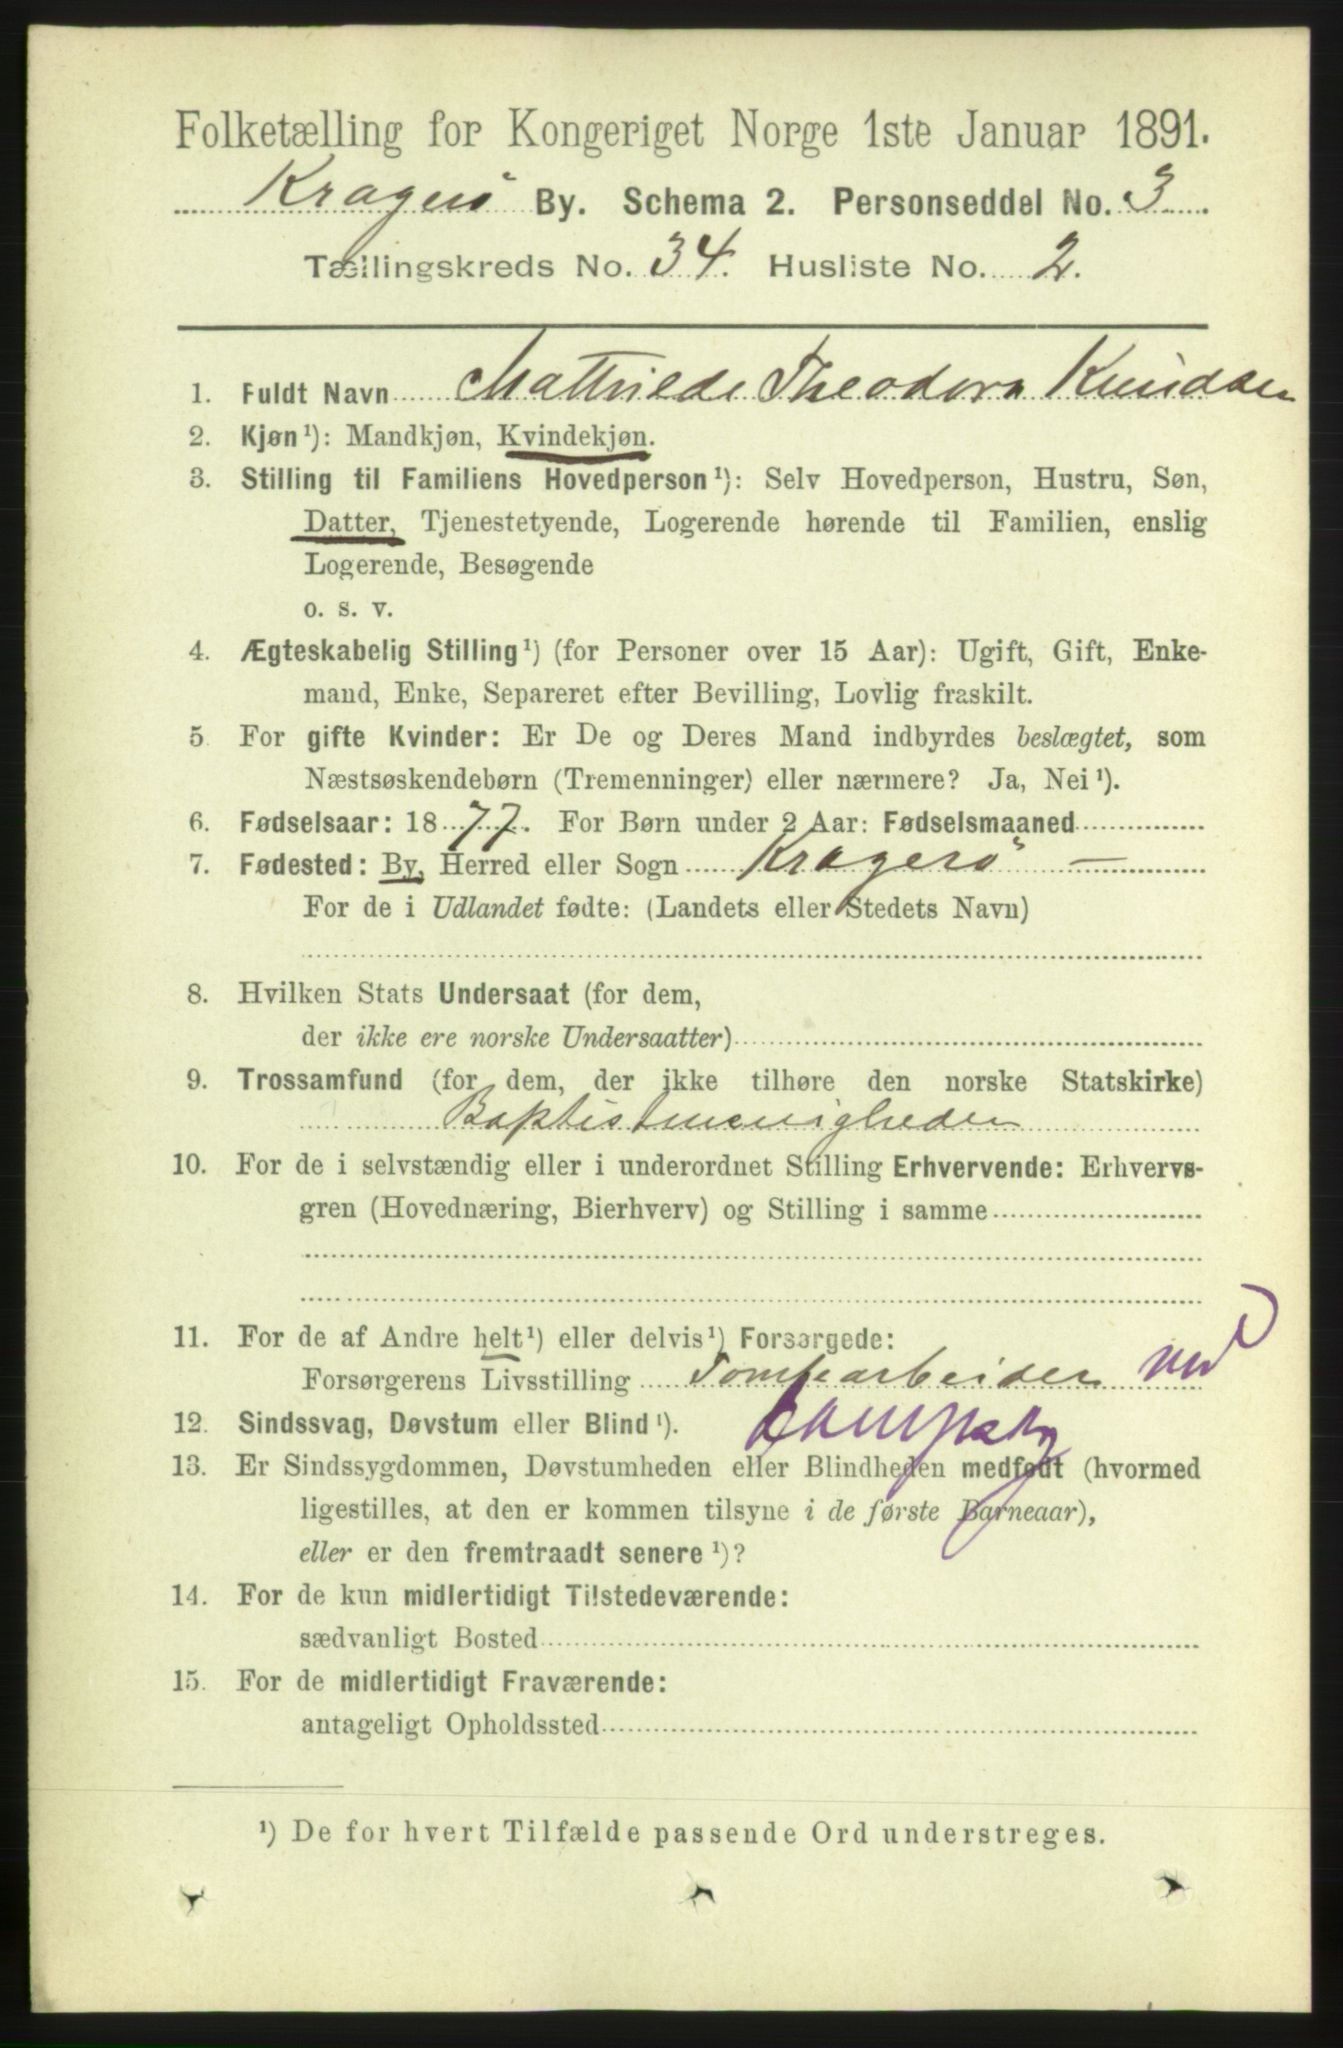 Folketælling for Kongeriget Norge 1ste Januar 1891.
Kragerö By. Schema 2. Personseddel No. 3
Tællingskreds No. 34. Husliste No. 2.
1. Fuldt Navn Mathilde Theodora Knudsen
2. Kjøn ¹): Mandkjøn, Kvindekjøn.
3. Stilling til Familiens Hovedperson ¹): Selv Hovedperson, Hustru, Søn,
Datter, Tjenestetyende, Logerende hørende til Familien, enslig
Logerende, Besøgende
o. s. v.
4. Ægteskabelig Stilling ¹) (for Personer over 15 Aar): Ugift, Gift, Enke-
mand, Enke, Separeret efter Bevilling, Lovlig fraskilt.
5 For gifte Kvinder: Er De og Deres Mand indbyrdes beslægtet, som
Næstsøskendebørn (Tremenninger) eller nærmere? Ja, Nei ¹).
6. Fødselsaar: 1877. For Børn under 2 Aar: Fødselsmaaned
7. Fødested: By, Herred eller Sogn Kragerö —
For de i Udlandet fødte: (Landets eller Stedets Navn)
8. Hvilken Stats Undersaat (for dem,
der ikke ere norske Undersaatter)
9. Trossamfund (for dem, der ikke tilhøre den norske Statskirke)
Baptistmenigheden
10. For de i selvstændig eller i underordnet Stilling Erhvervende: Erhvervs-
gren (Hovednæring, Bierhverv) og Stilling i samme
11. For de af Andre helt ¹) eller delvis ¹) Forsørgede:
Forsørgerens Livsstilling Tomtearbeider ved
12. Sindssvag, Døvstum eller Blind ¹).
13. Er Sindssygdommen, Døvstumheden eller Blindheden medfødt (hvormed
ligestilles, at den er kommen tilsyne i de første Barneaar),
eller er den fremtraadt senere ¹)?
14. For de kun midlertidigt Tilstedeværende:
sædvanligt Bosted
15. For de midlertidigt Fraværende:
antageligt Opholdssted
¹) De for hvert Tilfælde passende Ord understreges.